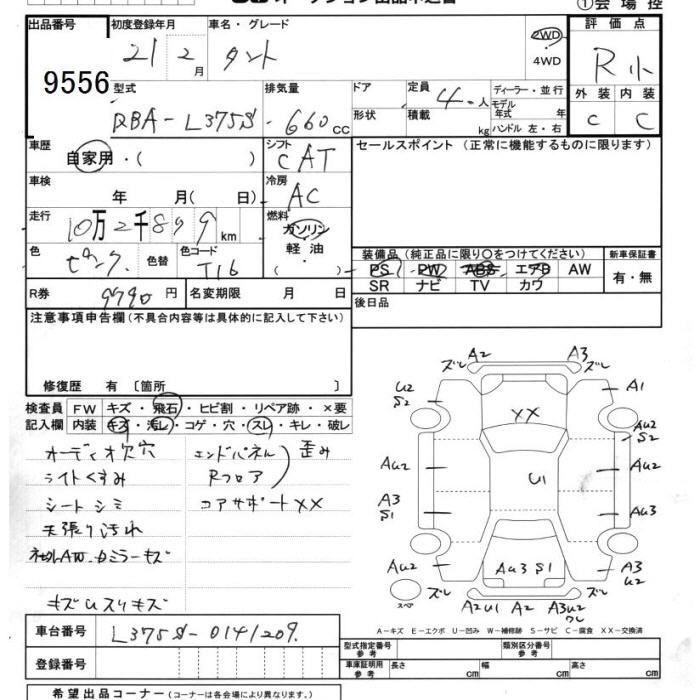 ①会場控
出品番号 初度登録年月 車名・グレード 評価点
9556 21 2月 タント 2WD・4WD R小
型式 排気量 ドア 定員 ディーラー・並行 外装 内装
DBA-L375S 660cc 形状 積載 4人 kg モデル年式 年 ハンドル 左・右 C C
車歴 自家用・( ) シフト CAT セールスポイント(正常に機能するものに限ります)
車検 年 月( 日) 冷房 AC
走行 10万2千899km 燃料 ガソリン・軽油・( )
色 ピンク 色替 色コード T16
装備品(純正品に限り○をつけてください) 新車保証書
PS PW ABS エアB AW 有・無
SR ナビ TV カワ
R券 9790円 名変期限 月 日 後日品
注意事項申告欄(不具合内容等は具体的に記入して下さい)
修復歴 有〔箇所 〕
検査員 FW キズ・飛石・ヒビ割・リペア跡・×要
記入欄 内装 キズ・汚レ・コゲ・穴・スレ・キレ・破レ
オーディオ欠 穴 エンドパネル 歪み
ライトくすみ Rフロア
シートシミ コアサポートXX
天張り汚れ
カミラーキズ
キズUスリキズ
ズレ A2 A3 ズレ
U2 S2 A1
XX
AU2 S2
AU2 U1 AU2
A3 S1 AU3
AU2 AU3 S1 A3 U2
スペア ズレ A2U1 A2 A3U2 ワレ ズレ
A-キズ E-エクボ U-凹み W-補修跡 S-サビ C-腐食 XX-交換済
車台番号 L375S-0141209
型式指定番号 参考 類別区分番号 参考
登録番号 車庫証明用 参考 長さ cm 幅 cm 高さ cm
希望出品コーナー(コーナーは各会場により異なります。)